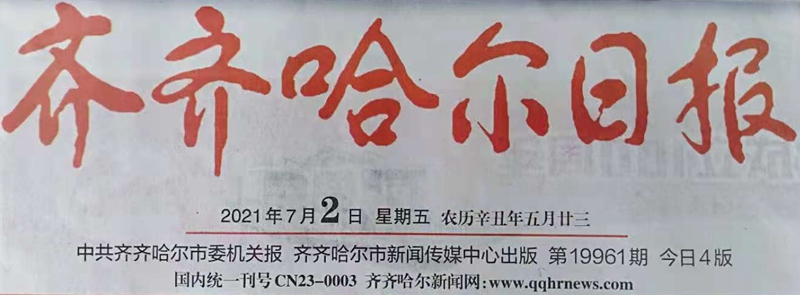 齐齐哈尔日报
2021年7月2日 星期五 农历辛丑年五月廿三
中共齐齐哈尔市委机关报 齐齐哈尔市新闻传媒中心出版 第19961期 今日4版
国内统一刊号CN23-0003 齐齐哈尔新闻网:www.qqhrnews.com